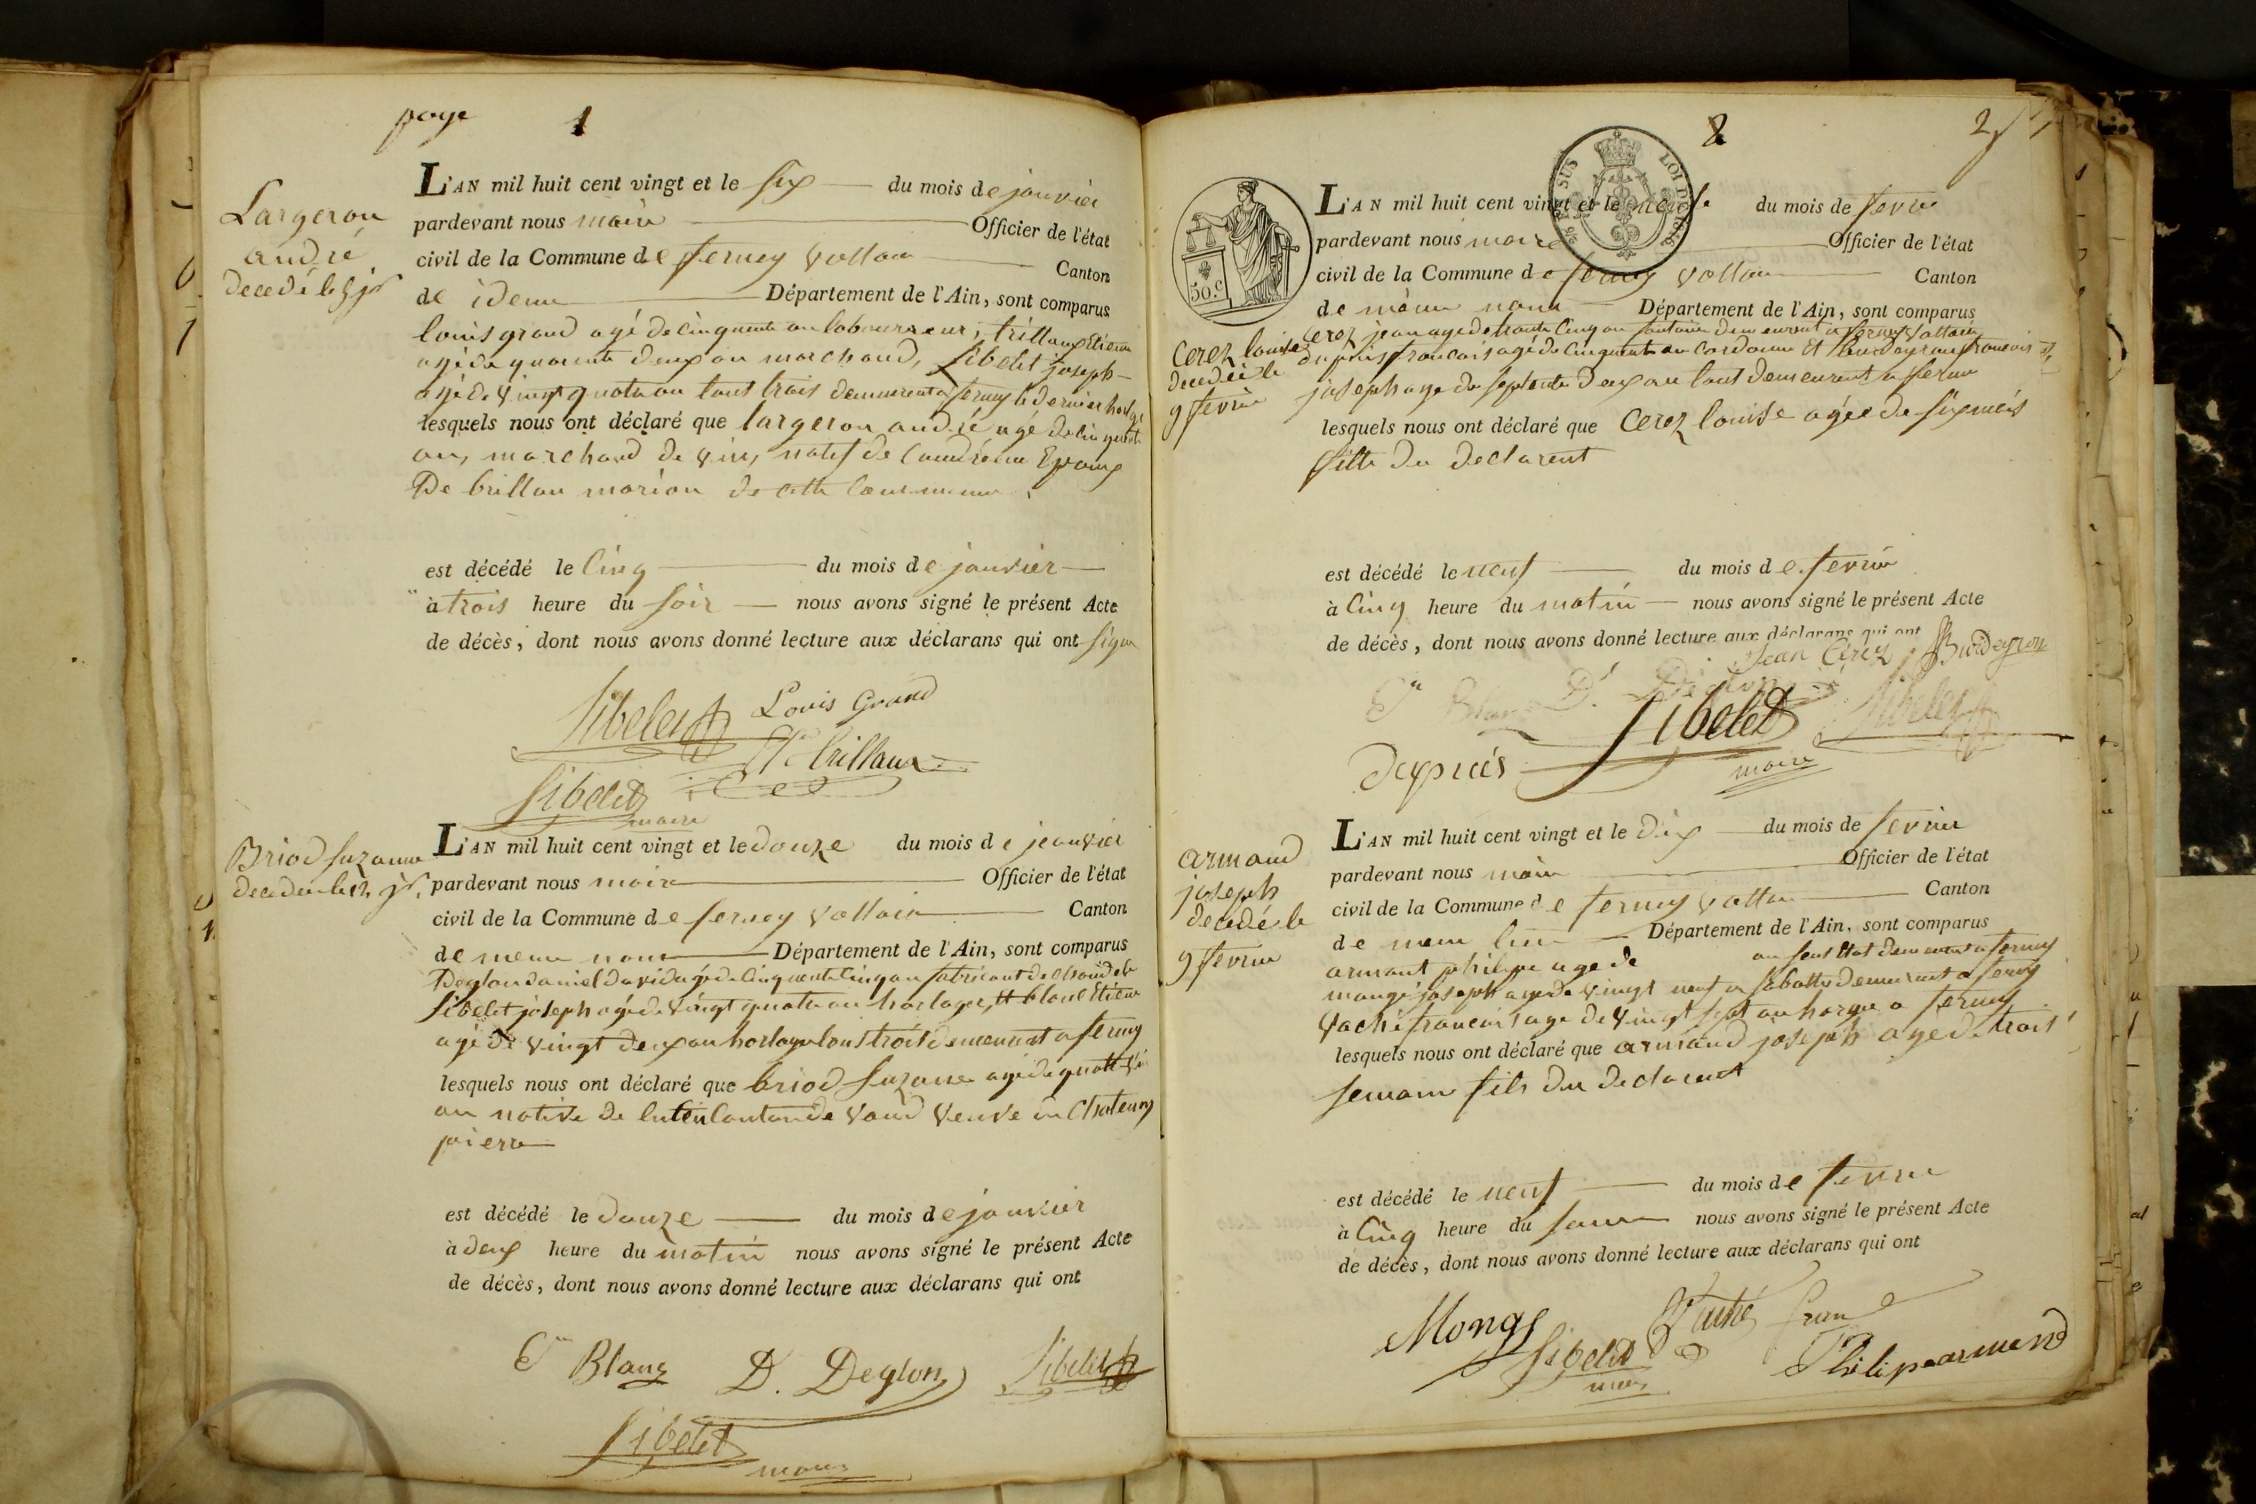 page 1
Largeron
andré
decedé le 5 jr
L'AN mil huit cent vingt et le six du mois de janvier
pardevant nous maire Officier de l'état
civil de la Commune de ferney Voltair Canton
de idem Département de l'Ain, sont comparus
louis grand agé de cinquente an laboureur, trillaux Etienne
agé de quarente deux an marchand, Sibelet joseph
agé de vingt quatre an tout trois demeurent a ferney le dernier horloge
lesquels nous ont déclaré que largeron andré agé de cinquente
an, marchand de vin, natif de Epoux
De brillau marion de cette commune
est décédé le cinq du mois de janvier
à trois heure du soir nous avons signé le présent Acte
de décès, dont nous avons donné lecture aux déclarans qui ont signé
Sibelet Louis Grand
Sibelet
maire
Briod suzanne
decedée le 12 jr.
L'AN mil huit cent vingt et le douze du mois de jeanvier
pardevant nous maire Officier de l'état
civil de la Commune de ferney Voltair Canton
de meme nom Département de l'Ain, sont comparus
Deglon daniel david agé de cinquente cinq an fabricant de
Sibelet joseph agé de vingt quatre an horloger, et blanc Etiene
agé de vingt deux an horloger tous trois demeurent a ferney
lesquels nous ont déclaré que briod suzane agé de quatt vin
an native de Canton de Vaud Veuve de Chateney
pierre
est décédé le douze du mois de janvier
à deux heure du matin nous avons signé le présent Acte
de décès, dont nous avons donné lecture aux déclarans qui ont
En Blanc D. Deglon Sibelet
Sibelet
maire
2 2
SUS LOI DE 1816
50.c
L'AN mil huit cent vingt et le neuf du mois de fevrie
pardevant nous maire Officier de l'état
civil de la Commune de ferney Voltair Canton
de même nom Département de l'Ain, sont comparus
Cerez louise
decedée le
9 fevrie
Cerez jean age de trante cinq an demeurent a ferney Voltair
dupuis francois agé de cinquente an cordonie et francois
joseph age de septente deux an tout demeurent a ferney
lesquels nous ont déclaré que Cerez louise agée de six mois
fille du declarent
est décédé le neuf du mois de fevrie
à cinq heure du matin nous avons signé le présent Acte
de décès, dont nous avons donné lecture aux déclarans qui ont
Jean Cerez
En Blanc D. Deglon
Sibelet Sibelet
Depuis maire
armand
joseph
decedé le
9 fevrie
L'AN mil huit cent vingt et le dix du mois de fevrier
pardevant nous maire Officier de l'état
civil de la Commune de ferney Voltair Canton
de meme lieu Département de l'Ain, sont comparus
armant philipe age de an demeurent a ferney
mange joseph age de vingt neuf an demeurent a ferney
Vaché francois age de vingt sept an a ferney
lesquels nous ont déclaré que armand joseph age de trois
semain fils du declarent
est décédé le neuf du mois de fevrie
à cinq heure du nous avons signé le présent Acte
de décès, dont nous avons donné lecture aux déclarans qui ont
Monge Vaché
Sibelet Philipe armand
maire